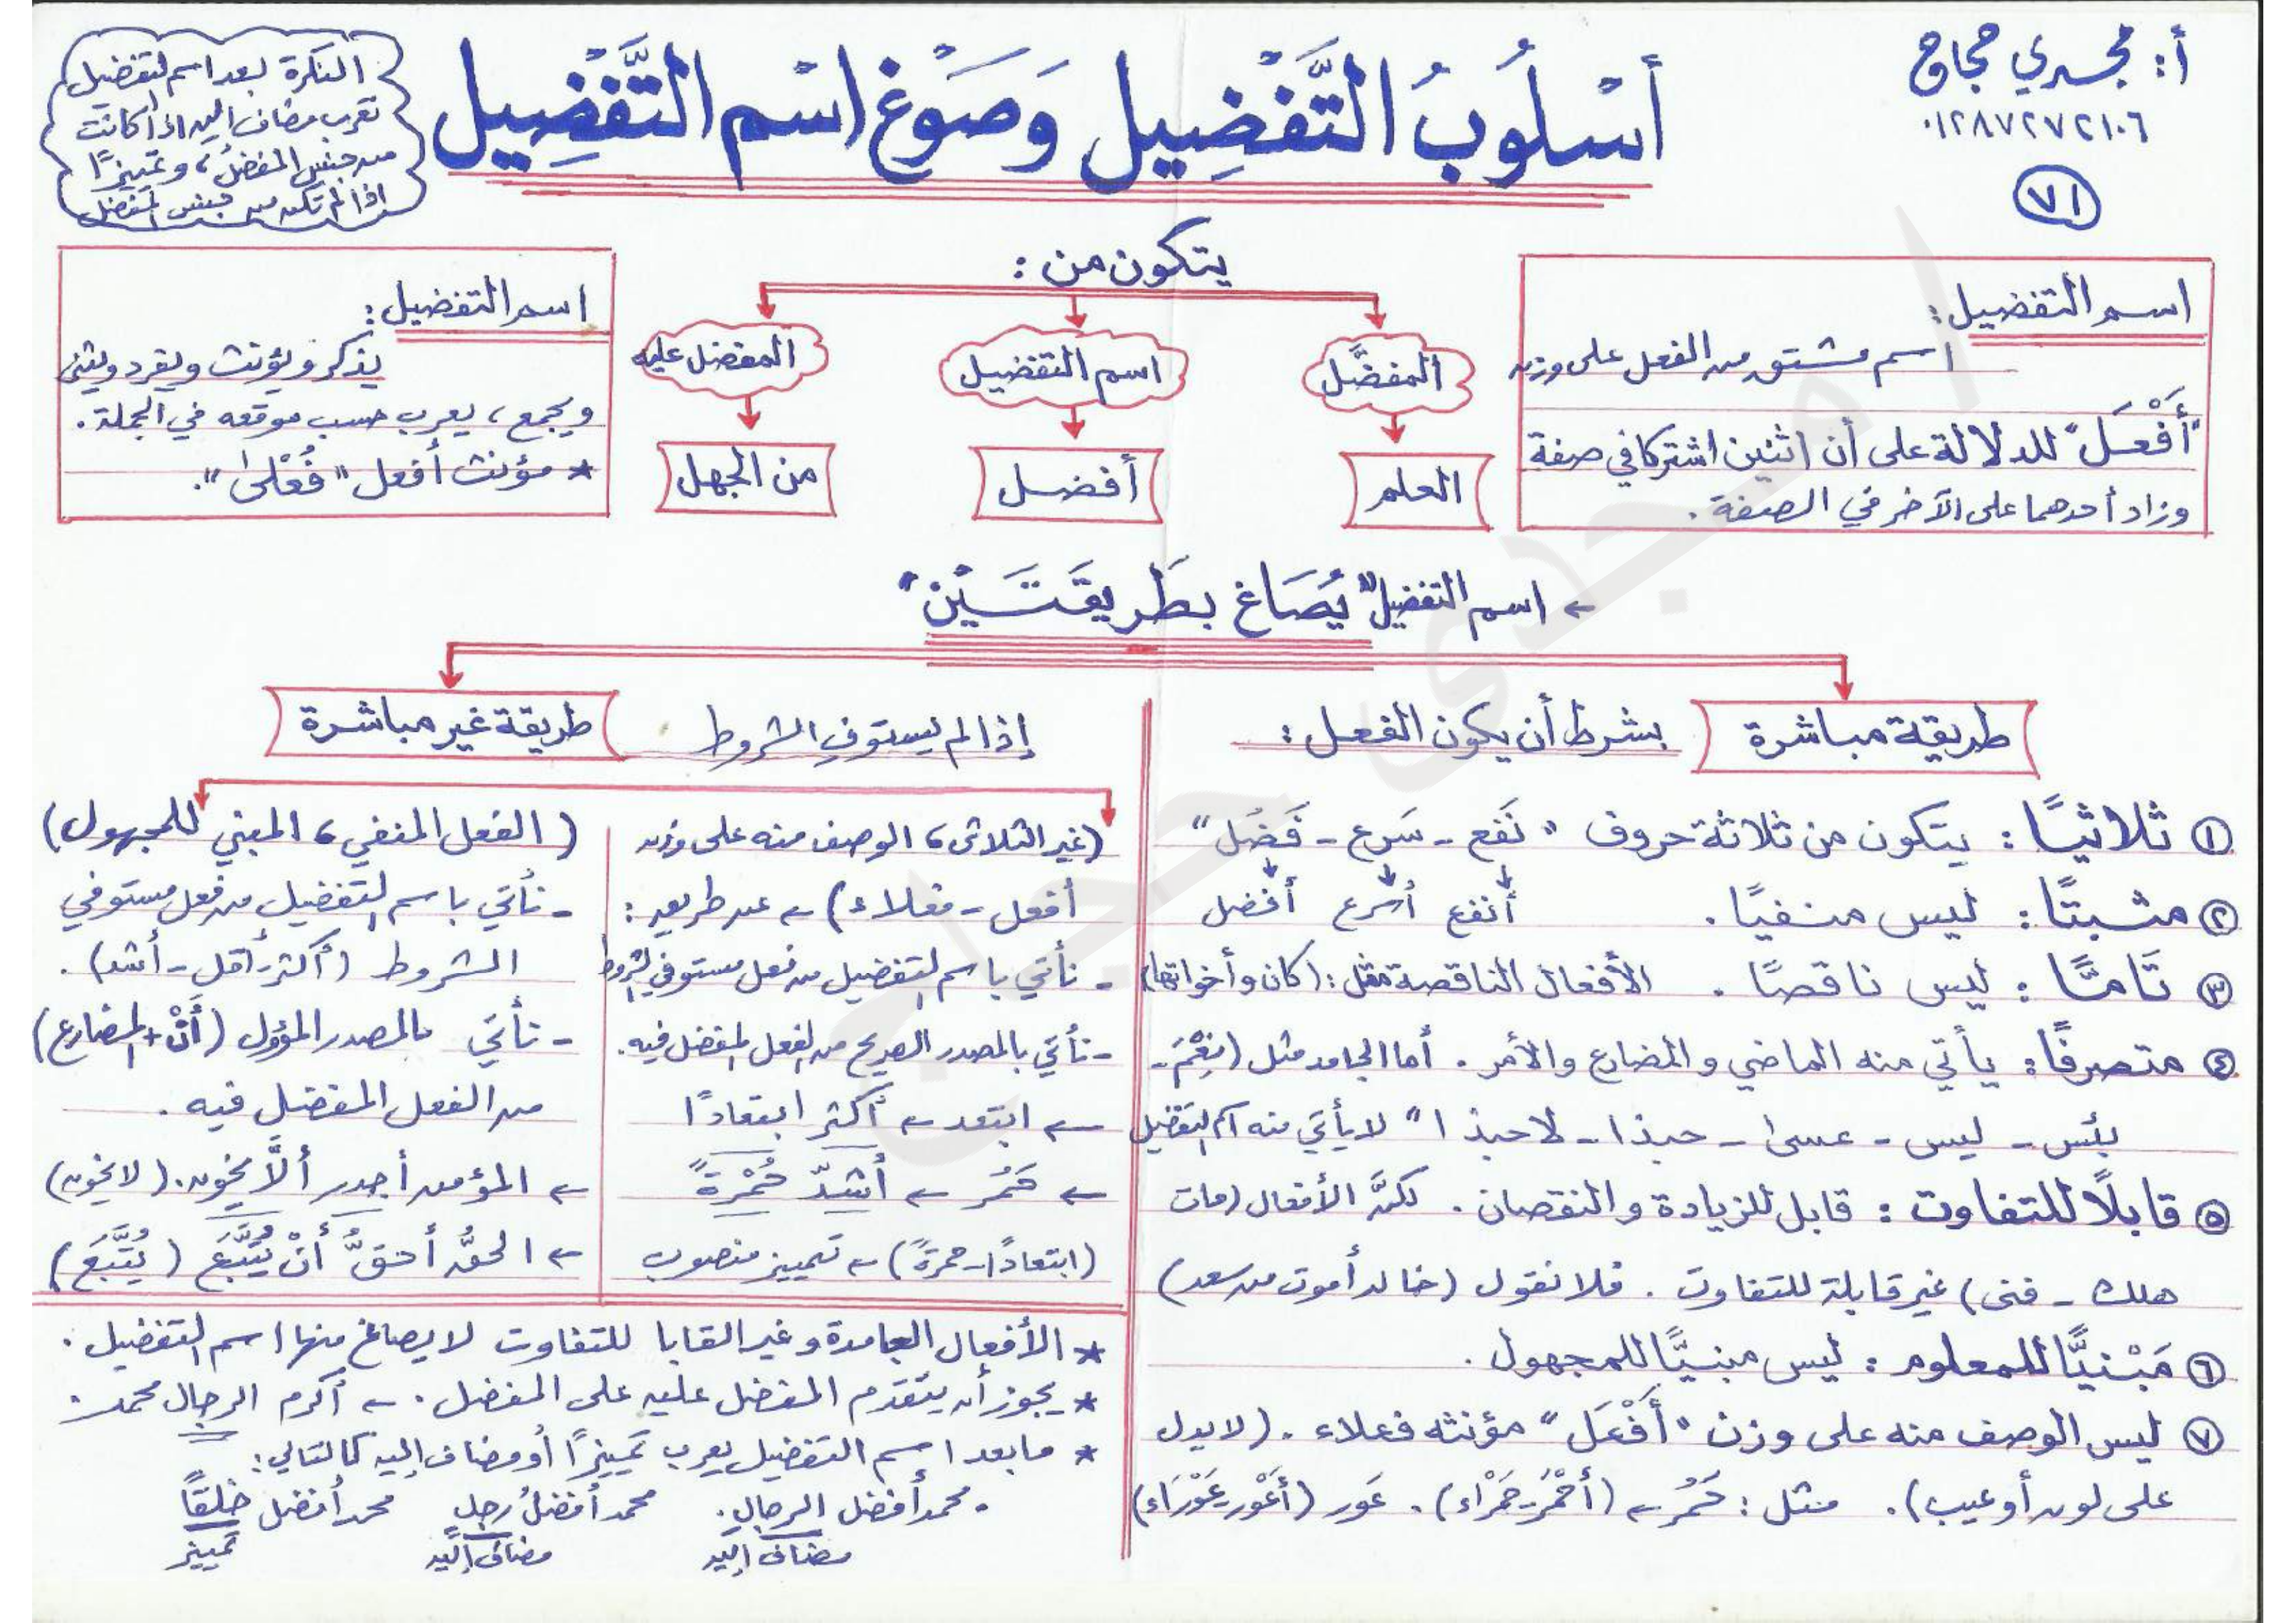 أ: مجدي حجاج
٠١٢٨٧٢٧٢١٠٦
٧١
أسْلُوبُ التَّفْضِيل وَصَوْغ اسْم التَّفْضِيل
النكرة بعد اسم التفضيل
تعرب مضاف إليه إذا كانت
من جنس المفضل، وتمييزًا
إذا لم تكن من جنس المفضل
اسم التفضيل:
اسم مشتق من الفعل على وزن
"أَفْعَل" للدلالة على أن اثنين اشتركا في صفة
وزاد أحدهما على الآخر في الصفة.
يتكون من:
المفضَّل
اسم التفضيل
المفضل عليه
العلم
أفضل
من الجهل
اسم التفضيل:
يذكر ويؤنث ويفرد ويثنى
ويجمع، يعرب حسب موقعه في الجملة.
* مؤنث أفعل "فُعْلى".
← اسم التفضيل "يُصَاغ بطَريقَتَيْن"
طريقة مباشرة
بشرط أن يكون الفعل:
① ثلاثيًا: يتكون من ثلاثة حروف "نَفع - سَرع - فَضُل"
② مثبتًا: ليس منفيًا. أنفع أسرع أفضل
③ تَامًّا: ليس ناقصًا. الأفعال الناقصة مثل: (كان وأخواتها)
④ متصرفًا: يأتي منه الماضي والمضارع والأمر. أما الجامد مثل (نِعْمَ -
بئس - ليس - عسى - حبذا - لا حبذا" لا يأتي منه اسم التفضيل
⑤ قابلًا للتفاوت: قابل للزيادة والنقصان. لكنَّ الأفعال (مات
هلك - فنى) غير قابلة للتفاوت. فلا نقول (خالد أموت من سعد)
⑥ مَبْنيًّا للمعلوم: ليس مبنيًّا للمجهول.
⑦ ليس الوصف منه على وزن "أَفْعَل" مؤنثه فعلاء. (لا يدل
على لون أو عيب). مثل: حَمُر ← (أحْمَر - حَمْراء). عَور (أعْوَر - عَوْرَاء)
طريقة غير مباشرة
إذا لم يستوفِ الشروط
(غير الثلاثى، الوصف منه على وزن
أفعل - فعلاء) ← عن طريق:
- نأتي باسم التفضيل من فعل مستوفي الشروط
- نأتي بالمصدر الصريح من الفعل المفضل فيه.
← ابتعد ← أكثر ابتعادًا
← حَمُر ← أشدّ حُمْرةً
(ابتعادًا - حمرةً) ← تمييز منصوب
(الفعل المنفي، المبني للمجهول)
- نأتي باسم التفضيل من فعل مستوفي
الشروط (أكثر - أقل - أشد).
- نأتي بالمصدر المؤول (أنْ + المضارع)
من الفعل المفضل فيه.
← المؤمن أجدر ألَّا يخون. (لا يخون)
← الحقُّ أحقُّ أنْ يُتَّبَع (يُتَّبَع)
* الأفعال الجامدة وغير القابا للتفاوت لا يصاغ منها اسم التفضيل.
* يجوز أن يتقدم المفضل عليه على المفضل. ← أكرم الرجال محمد.
* ما بعد اسم التفضيل يعرب تمييزًا أو مضاف إليه كالتالي:
- محمد أفضل الرجال. محمد أفضلُ رجلٍ محمد أفضل خلقًا
مضاف إليه مضاف إليه تمييز
مجدى حجاج